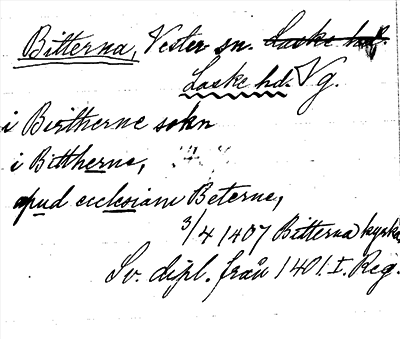 Bitterna, Vester sn. Laske hd.
Laske hd. Vg.
i Birtherne sokn
i Bittherne,
apud ecclesiam Beterne,
3/4 1407 Bitterna kyrka
Sv. dipl. från 1401. I. Reg.